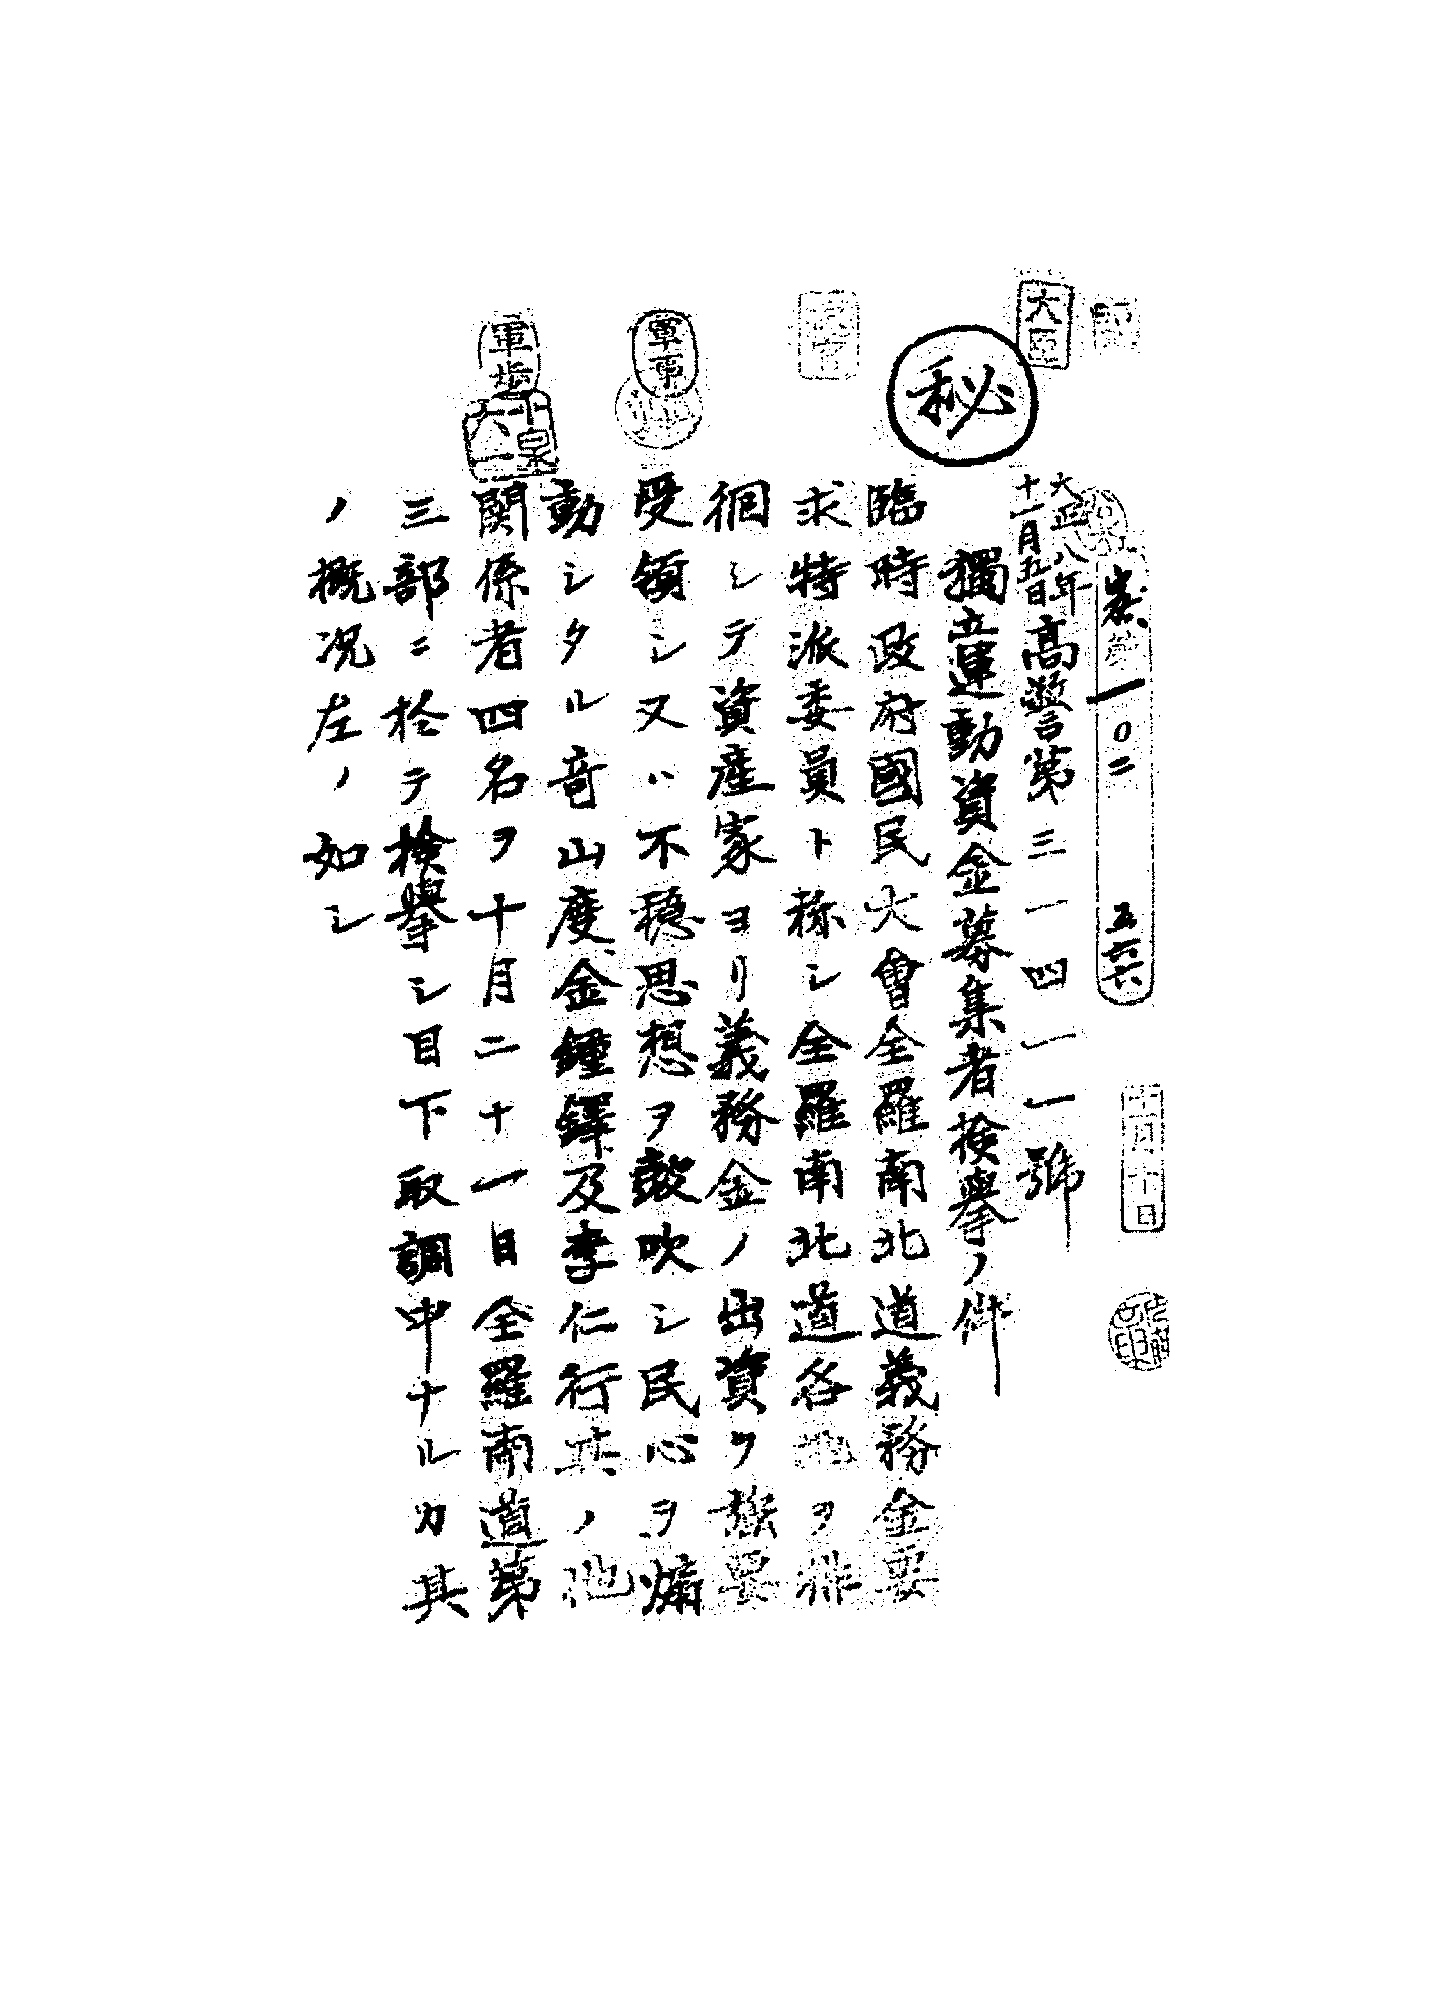 秘
大正八年
十一月五日
高警第三一四一一號
獨立運動資金募集者検擧ノ件
臨時政府國民大會全羅南北道義務金要
求特派委員ト称シ全羅南北道各地ヲ徘
徊シテ資産家ヨリ義務金ノ出資ヲ强要
受領シ又ハ不穏思想ヲ鼓吹シ民心ヲ煽
動シタル竒山度金鍾鐸及李仁行其ノ他
関係者四名ヲ十月二十一日全羅南道第
三部ニ於テ検擧シ目下取調中ナルカ其
ノ概況左ノ如シ